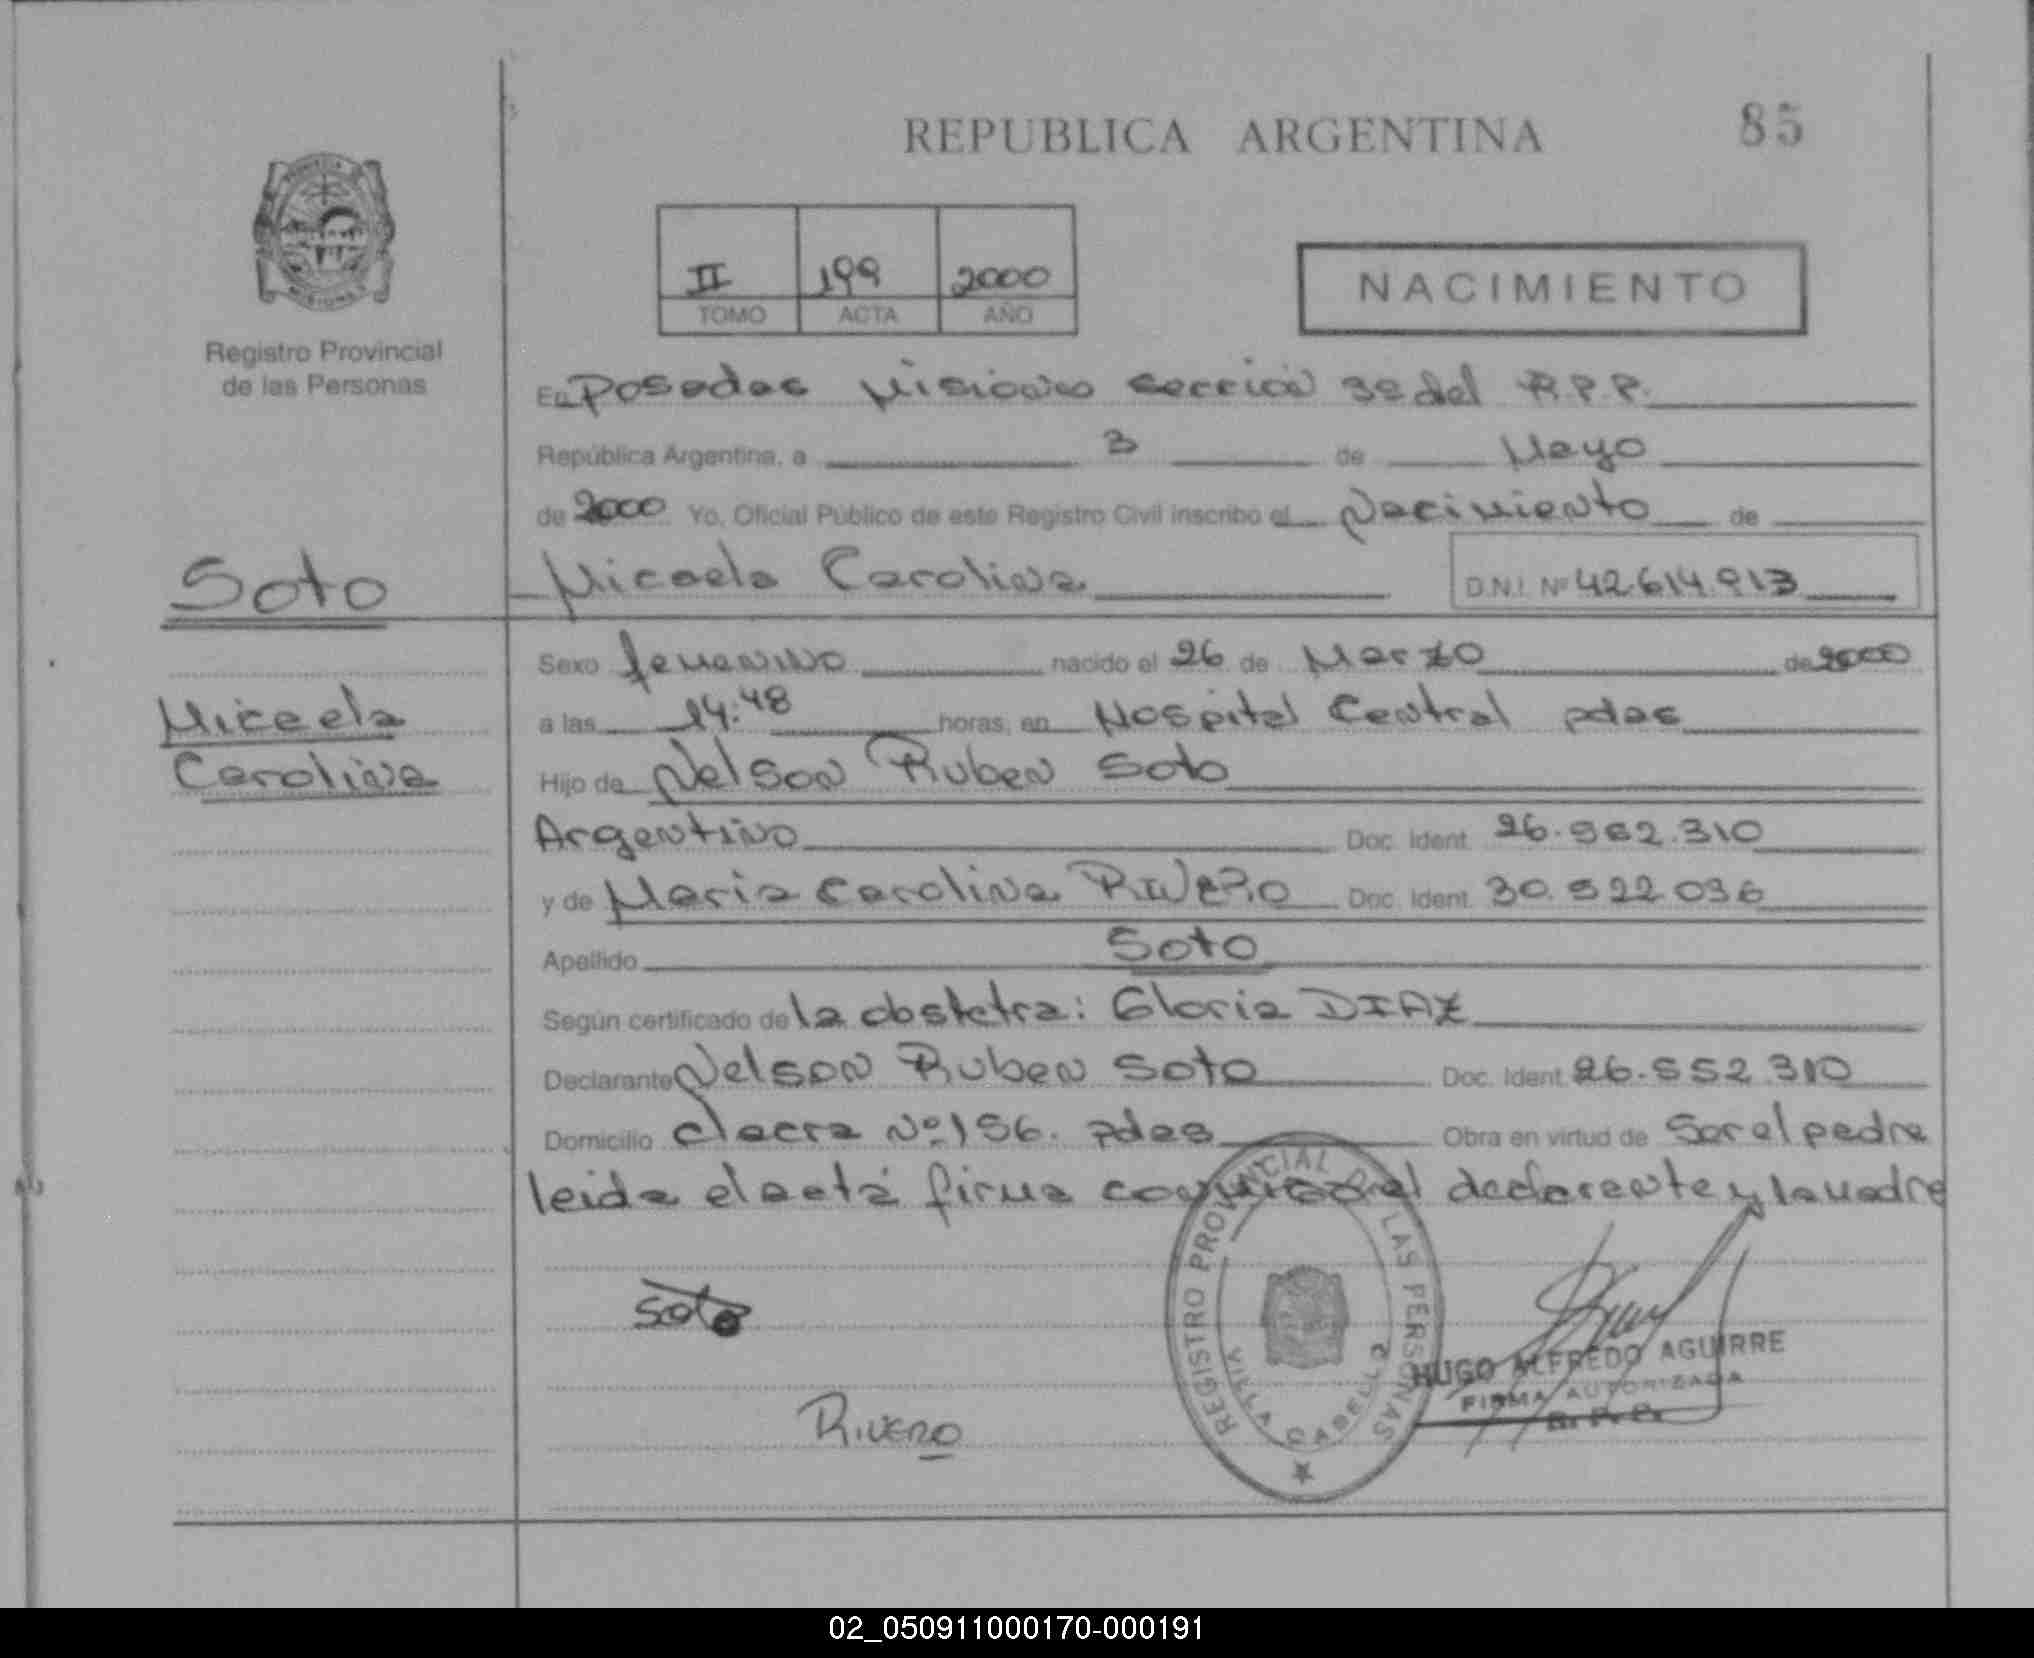 REPUBLICA ARGENTINA
85
II 199 2000
TOMO ACTA AÑO
NACIMIENTO
Registro Provincial
de las Personas
En Posadas Misiones sección 3ª del R.P.P.
República Argentina, a 3 de Mayo
de 2000 Yo, Oficial Público de este Registro Civil inscribo el Nacimiento de
Soto
Micaela Carolina D.N.I. Nº 42.614.913
Sexo femenino nacido el 26 de Marzo de 2000
Micaela
a las 14:48 horas, en Hospital Central pdas
Carolina
Hijo de Nelson Ruben Soto
Argentino Doc. Ident. 26.552.310
y de Maria Carolina RIVERO Doc. Ident. 30.522.036
Apellido Soto
Según certificado de la obstetra: Gloria DIAZ
Declarante Nelson Ruben Soto Doc. Ident. 26.552.310
Domicilio chacra Nº 156. pdas Obra en virtud de Ser el padre
leida el acta firma conmigo el declarante y la madre
Soto
RIVERO
REGISTRO PROVINCIAL DE LAS PERSONAS
VILLA CABELLO
HUGO ALFREDO AGUIRRE
FIRMA AUTORIZADA
R. P. P.
02_050911000170-000191